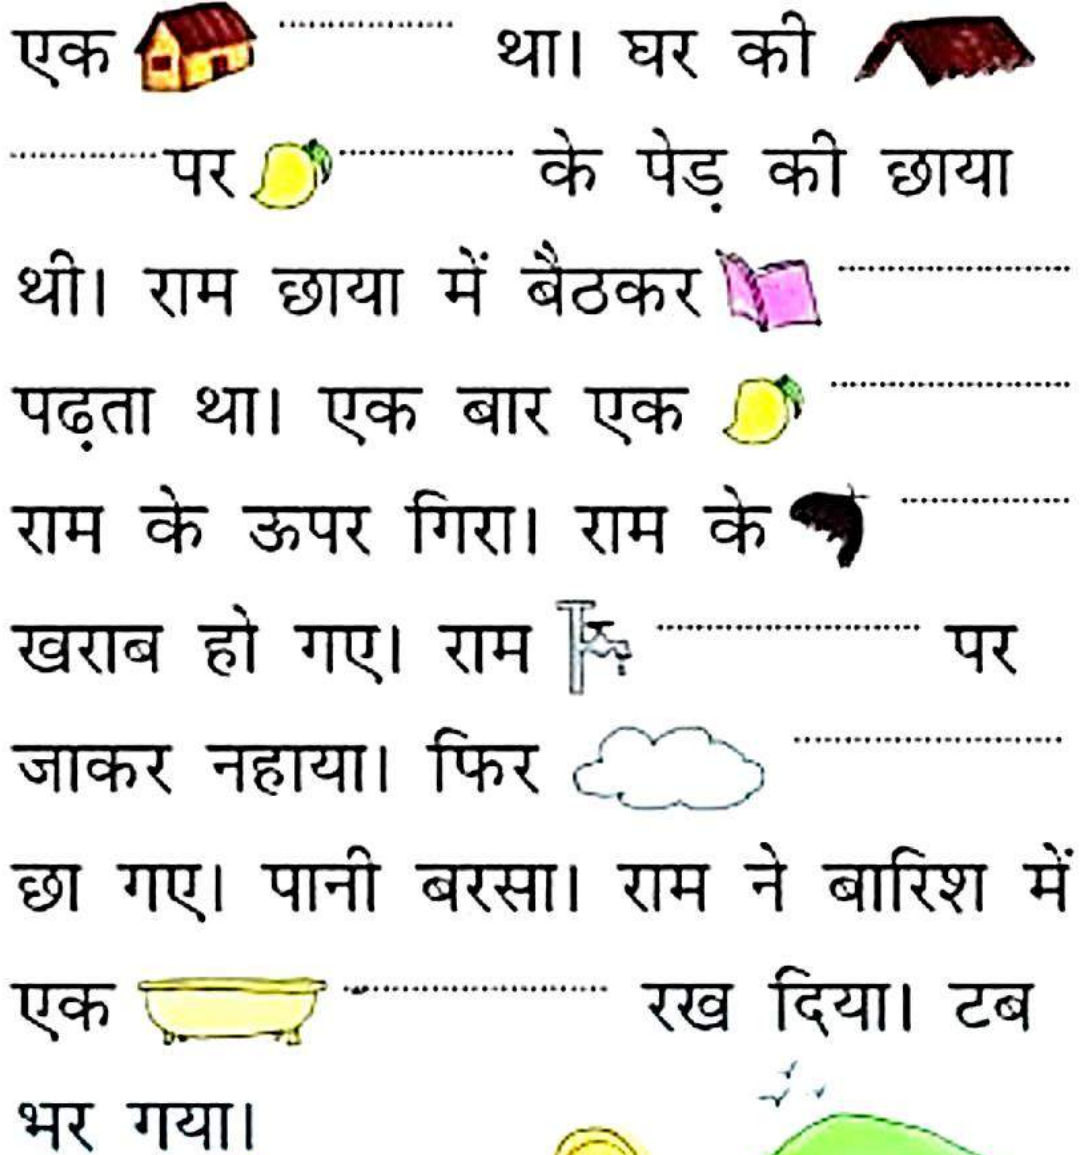 एक .................... था। घर की
.................... पर .................... के पेड़ की छाया
थी। राम छाया में बैठकर ....................
पढ़ता था। एक बार एक ....................
राम के ऊपर गिरा। राम के ....................
खराब हो गए। राम .................... पर
जाकर नहाया। फिर ....................
छा गए। पानी बरसा। राम ने बारिश में
एक .................... रख दिया। टब
भर गया।